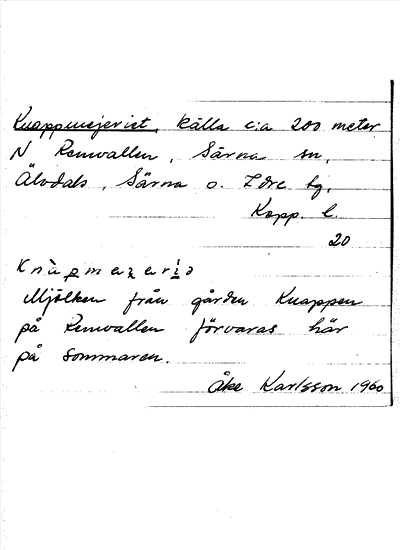 Knappmejeriet, källa c:a 200 meter
N Remvallen, Särna sn,
Älvdals, Särna o. Idre tg,
Kopp. l.
20
Mjölken från gården Knappen
på Remvallen förvaras här
på sommaren.
Åke Karlsson 1960